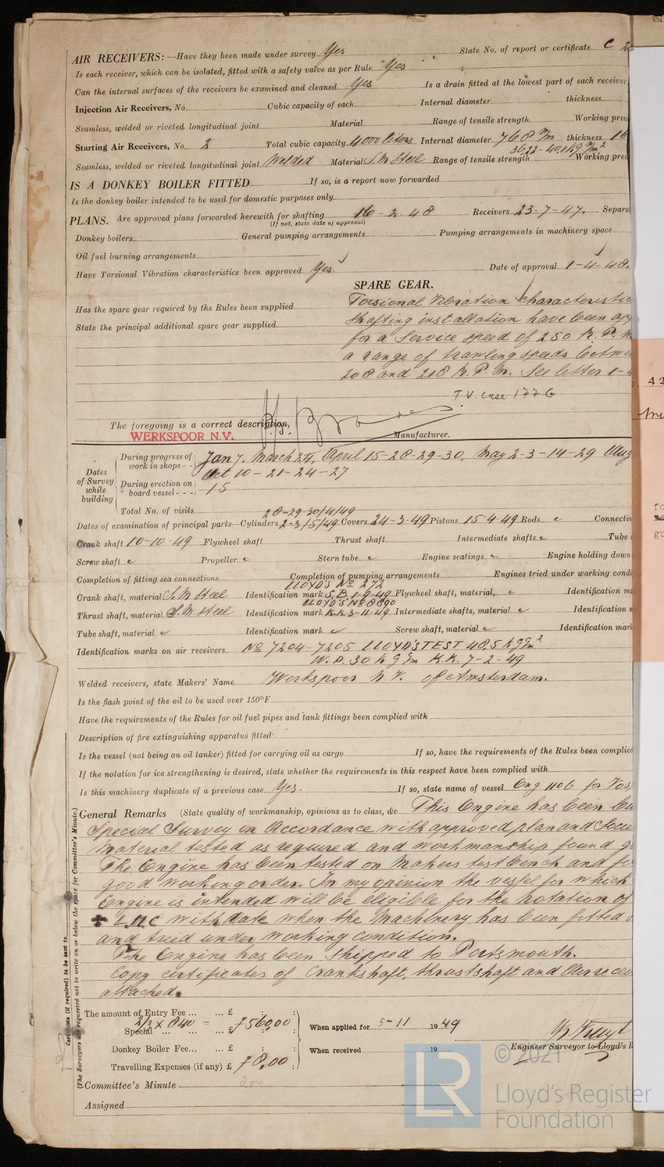 AIR RECEIVERS:—Have they been made under survey Yes State No. of report or certificate C
Is each receiver, which can be isolated, fitted with a safety valve as per Rule Yes
Can the internal surfaces of the receivers be examined and cleaned Yes Is a drain fitted at the lowest part of each receiver
Injection Air Receivers, No. Cubic capacity of each Internal diameter thickness
Seamless, welded or riveted longitudinal joint Material Range of tensile strength Working pre
Starting Air Receivers, No. 2 Total cubic capacity 4000 liters Internal diameter 768 m/m thickness 16
Seamless, welded or riveted longitudinal joint Welded Material S.M. Steel Range of tensile strength Working pre
IS A DONKEY BOILER FITTED If so, is a report now forwarded
Is the donkey boiler intended to be used for domestic purposes only
PLANS. Are approved plans forwarded herewith for shafting 16-2-48 Receivers 23-7-47. Separa
(If not, state date of approval)
Donkey boilers General pumping arrangements Pumping arrangements in machinery space
Oil fuel burning arrangements
Have Torsional Vibration characteristics been approved Yes Date of approval 1-4-48.
SPARE GEAR.
Has the spare gear required by the Rules been supplied Torsional Vibration Characteristic
State the principal additional spare gear supplied shafting installation have been ap
for a Service speed of 250 R.P.M
a range of trawling speeds betwe
208 and 218 R.P.M. See letter 1-
T.V. Case 1776
The foregoing is a correct description,
WERKSPOOR N.V. Manufacturer.
Dates of Survey while building
During progress of work in shops - - Jan 7. March 24, April 15-28-29-30, May 2-3-14-29 Aug
Oct 10-21-24-27
During erection on board vessel - - - 15
Total No. of visits
28-29-30/4/49
Dates of examination of principal parts—Cylinders 2-3/5/49 Covers 24-3-49 Pistons 15-4-49 Rods Connecti
Crank shaft 10-10-49 Flywheel shaft Thrust shaft Intermediate shafts Tube
Screw shaft Propeller Stern tube Engine seatings Engine holding down
Completion of fitting sea connections Completion of pumping arrangements Engines tried under working condi
LLOYD'S No 272
Crank shaft, material S.M Steel Identification mark S.B. 1-9-49 Flywheel shaft, material, Identification m
LLOYD'S No 8890
Thrust shaft, material S.M Steel Identification mark K.K. 3-11-49 Intermediate shafts, material Identification
Tube shaft, material Identification mark Screw shaft, material Identification mark
Identification marks on air receivers No 7204-7205 LLOYD'S TEST 48,5 kg/cm2
W.P. 30 kg/cm K.K. 7-2-49
Welded receivers, state Makers' Name Werkspoor N.V. of Amsterdam.
Is the flash point of the oil to be used over 150°F
Have the requirements of the Rules for oil fuel pipes and tank fittings been complied with
Description of fire extinguishing apparatus fitted
Is the vessel (not being an oil tanker) fitted for carrying oil as cargo If so, have the requirements of the Rules been complied
If the notation for ice strengthening is desired, state whether the requirements in this respect have been complied with
Is this machinery duplicate of a previous case Yes. If so, state name of vessel Eng 1106 for
General Remarks (State quality of workmanship, opinions as to class, &c. This Engine has been bu
Special Survey in Accordance with approved plan and Socie
material tested as required and workmanship found g
The Engine has been tested on makers testbench and fo
good working order. In my opinion the vessel for which
Engine is intended will be eligible for the notation of
✠ LMC with date when the Machinery has been fitted
and tried under working condition.
The Engine has been Shipped to Portsmouth.
Copy certificates of Crankshaft, thrustshaft and Air recei
attached.
Certificate (if required) to be sent to
(The Surveyors are requested not to write on or below the space for Committee's Minute.)
The amount of Entry Fee ... ... £
2/3 x 840 = ƒ 560,00 When applied for 5-11 1949
Special ... ... £
Donkey Boiler Fee... ... £ When received 19
Travelling Expenses (if any) £ ƒ 8,00
Engineer Surveyor to Lloyd's R
Committee's Minute
Assigned
LR
© 2021
Lloyd's Register
Foundation